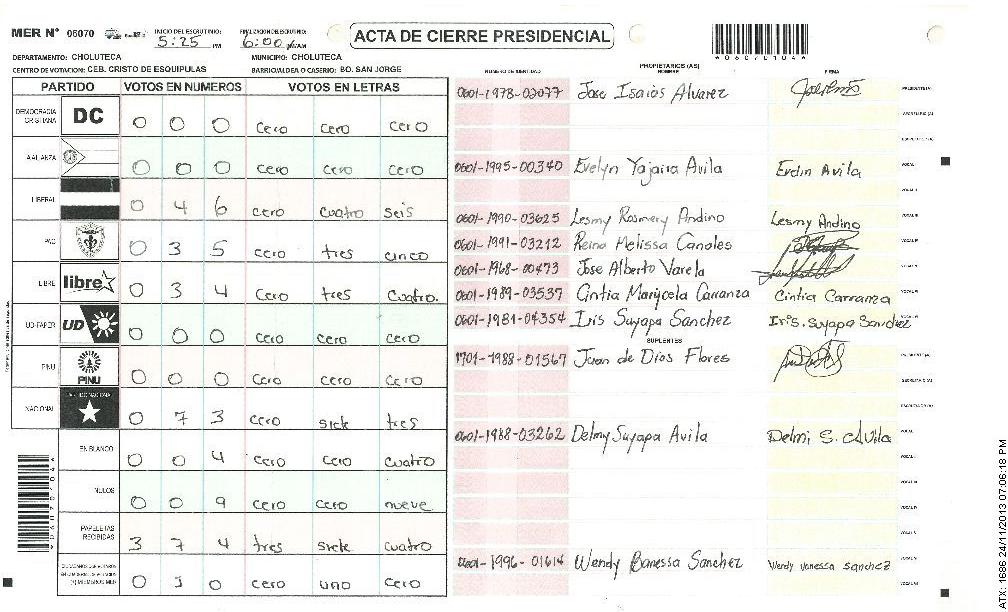 MER N° 06070 INICIO DEL ESCRUTINIO: 5:25 PM FINALIZACION ESCRUTINIO: 6:00 PM/AM ACTA DE CIERRE PRESIDENCIAL *06070104*
DEPARTAMENTO: CHOLUTECA MUNICIPIO: CHOLUTECA
CENTRO DE VOTACION: CEB. CRISTO DE ESQUIPULAS BARRIO/ALDEA O CASERIO: BO. SAN JORGE
PARTIDO VOTOS EN NUMEROS VOTOS EN LETRAS
DEMOCRACIA CRISTIANA DC 0 0 0 cero cero cero
ALIANZA 0 0 0 cero cero cero
LIBERAL 0 4 6 cero cuatro seis
PAC 0 3 5 cero tres cinco
LIBRE libre 0 3 4 cero tres cuatro.
UD-FAPER UD 0 0 0 cero cero cero
PINU PINU 0 0 0 cero cero cero
NACIONAL PARTIDO NACIONAL 0 7 3 cero siete tres
EN BLANCO 0 0 4 cero cero cuatro
NULOS 0 0 9 cero cero nueve
PAPELETAS RECIBIDAS 3 7 4 tres siete cuatro
(*) MIEMBROS MER 0 1 0 cero uno cero
NUMERO DE IDENTIDAD PROPIETARIOS (AS) NOMBRE FIRMA
0601-1978-02077 Jose Isaias Alvarez PRESIDENTE(A)
SECRETARIO (A)
ESCRUTADOR (A)
0601-1995-00340 Evelyn Yajaira Avila Evelin Avila VOCAL I
VOCAL II
0601-1990-03625 Lesmy Rosmery Andino Lesmy Andino VOCAL III
0601-1991-03212 Reina Melissa Canales VOCAL IV
0601-1968-00473 Jose Alberto Varela VOCAL V
0601-1989-03537 Cintia Marycela Carranza Cintia Carranza VOCAL VI
0601-1981-04354 Iris Suyapa Sanchez Iris. Suyapa Sanchez
SUPLENTES
1701-1988-01567 Juan de Dios Flores PRESIDENTE(A)
SECRETARIO (A)
ESCRUTADOR (A)
0601-1988-03262 Delmy Suyapa Avila Delmi S. Avila VOCAL I
VOCAL II
VOCAL III
VOCAL IV
VOCAL V
0601-1996-01614 Wendy Banessa Sanchez Wendy vanessa sanchez
*06070104*
ATX: 1686 24/11/2013 07:06:18 PM